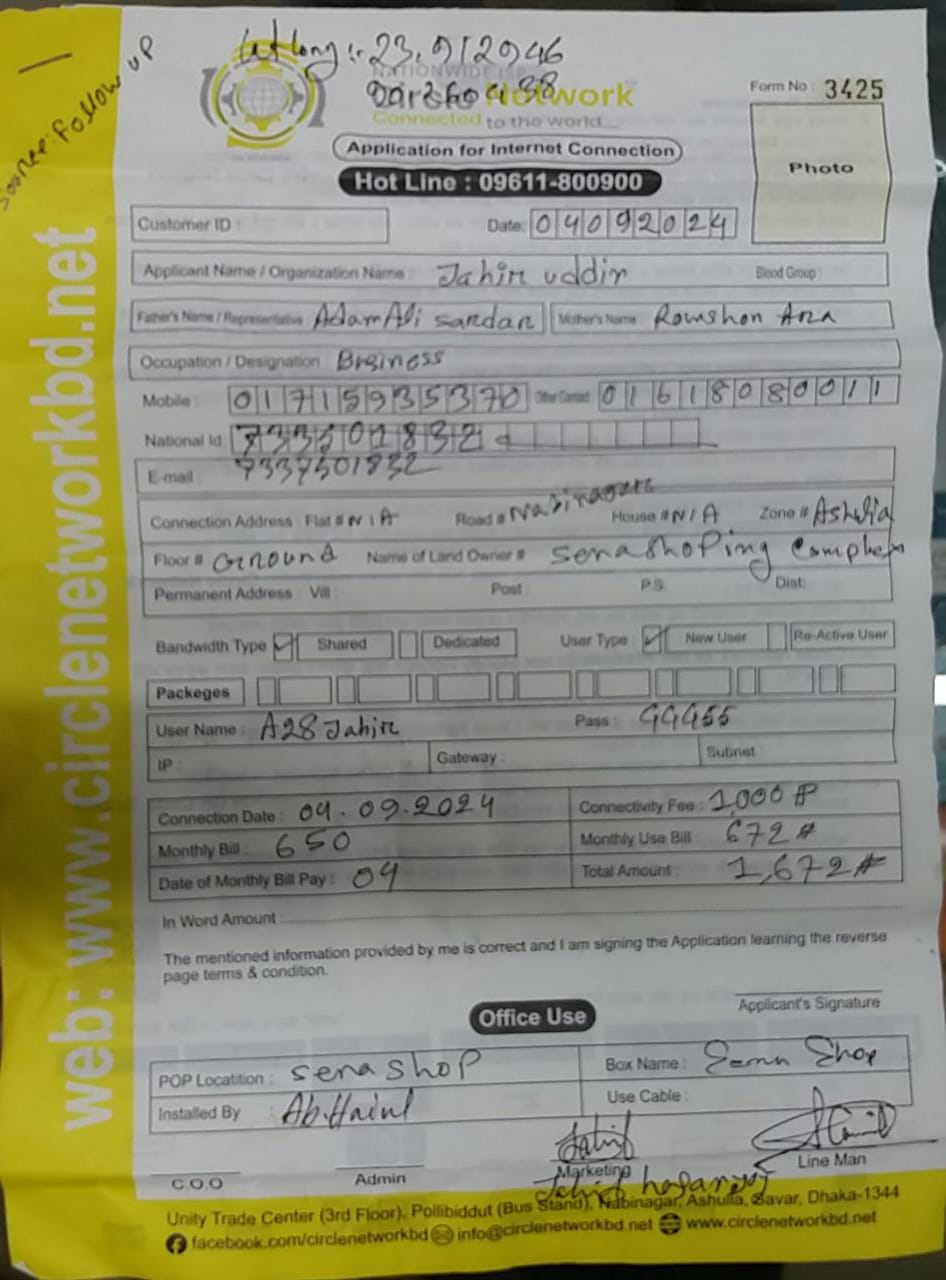 Source: Follow up
Lat Long :- 23.912946
NATIONWIDE ISP
Network
Connected to the world....
Form No : 3425
Application for Internet Connection
Photo
Hot Line : 09611-800900
Customer ID :
Date: 04092024
Applicant Name / Organization Name : Jahir uddin
Blood Group :
Father's Name / Representative Adam Ali sardar
Mother's Name Rowshon Ara
Occupation / Designation Bosiness
Mobile : 01715935370
Other Contact 01618080011
National Id
7337501832
E-mail :
Connection Address : Flat # N/A Road # Nabinagar House # N/A Zone # Ashulia
Floor # Ground Name of Land Owner # Sena shoping Complex
Permanent Address : Vill : Post : P.S. Dist:
Bandwidth Type Shared Dedicated User Type : New User Re-Active User
Packeges
User Name : A28 Jahir Pass : 99955
IP : Gateway : Subnet :
Connection Date : 04.09.2024 Connectivity Fee : 1,000
Monthly Bill : 650 Monthly Use Bill 672
Date of Monthly Bill Pay : 04 Total Amount : 1,672
In Word Amount :
The mentioned information provided by me is correct and I am signing the Application learning the reverse
page terms & condition.
Applicant's Signature
Office Use
POP Locatition : sena shop Box Name : Sena Shop
Installed By : Use Cable :
C.O.O Admin Marketing Line Man
Unity Trade Center (3rd Floor), Pollibiddut (Bus Stand), Nabinagar, Ashulia, Savar, Dhaka-1344
facebook.com/circlenetworkbd info@circlenetworkbd.net www.circlenetworkbd.net
web: www.circlenetworkbd.net